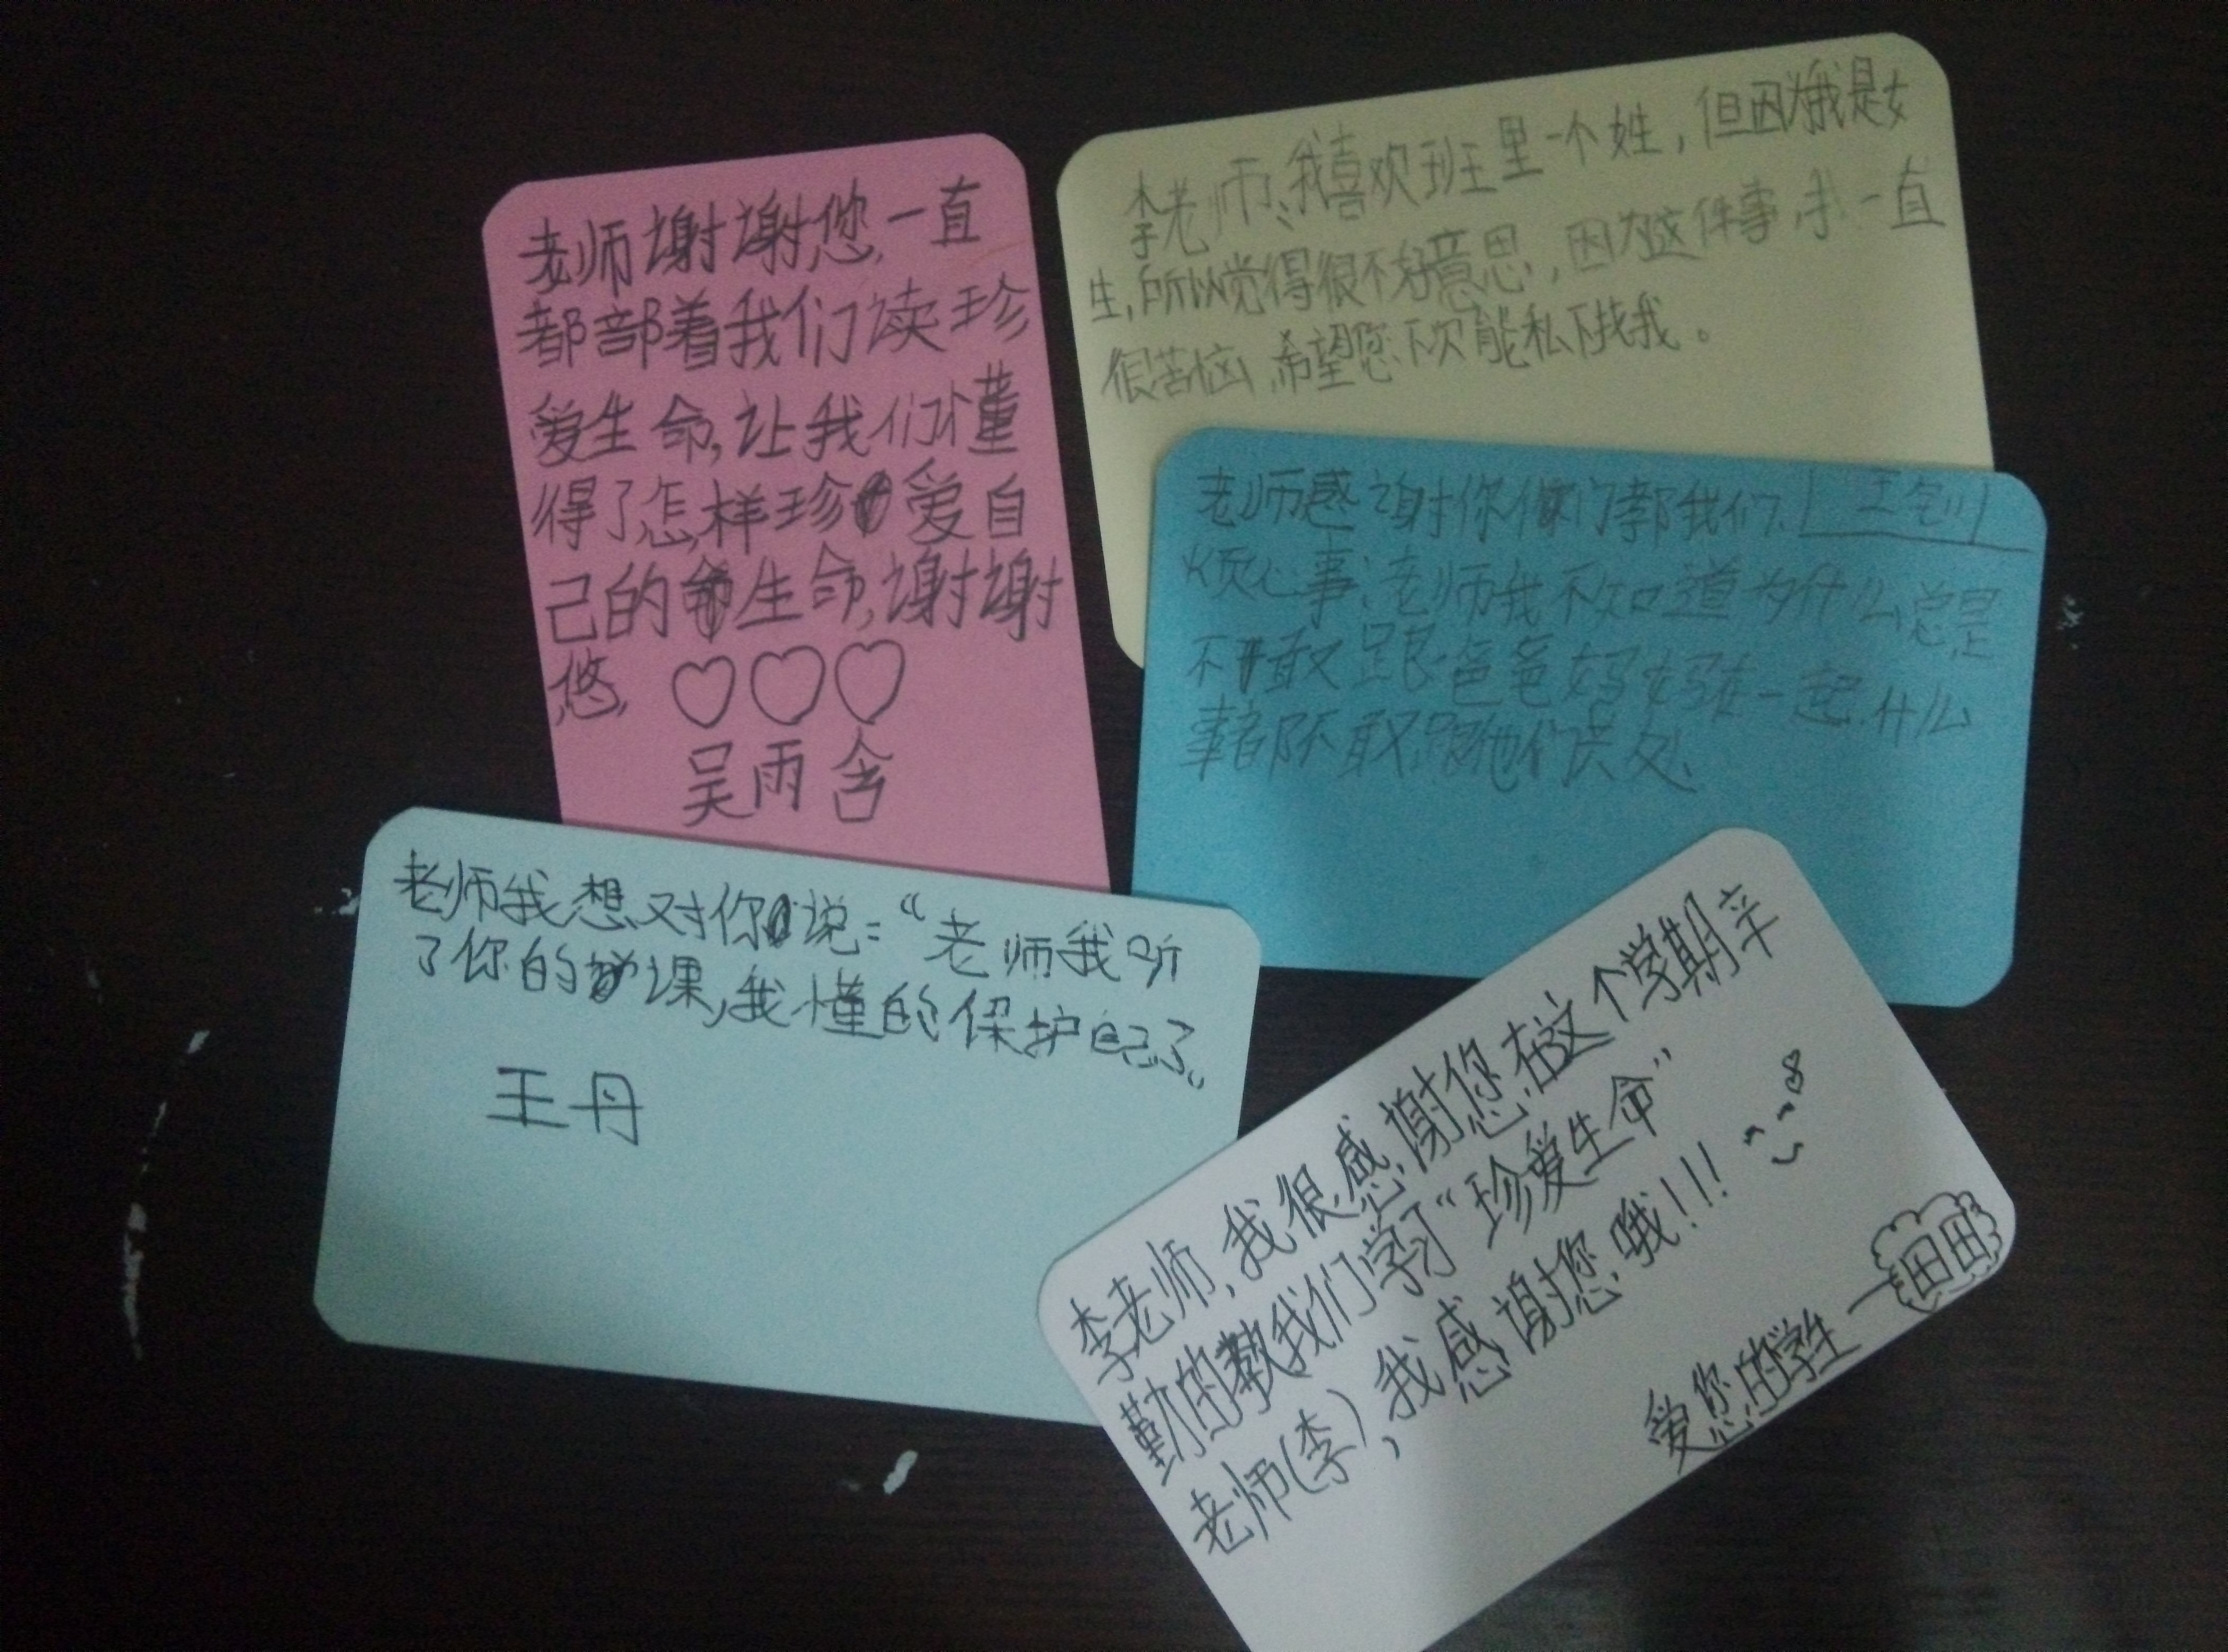 老师谢谢您,一直
都部着我们读珍
爱生命,让我们懂
得了怎样珍爱自
己的生命,谢谢
悠,
吴雨含
李老师、我喜欢班里一个姓,但因为我是女
生,所以觉得很不好意思,因为这件事,我一直
很苦恼,希望您下次能私下找我。
老师感谢你们教我们.
烦心事:老师我不知道为什么总是
不敢跟爸爸妈妈在一起.什么
事都不敢跟他们谈.
老师我想对你说:“老师我听
了你的课,我懂的保护自己了。
王丹
李老师,我很感谢您,在这个学期辛
勤的教我们学习“珍爱生命”
老师(李),我感谢您哦!!!
爱您的学生—田田